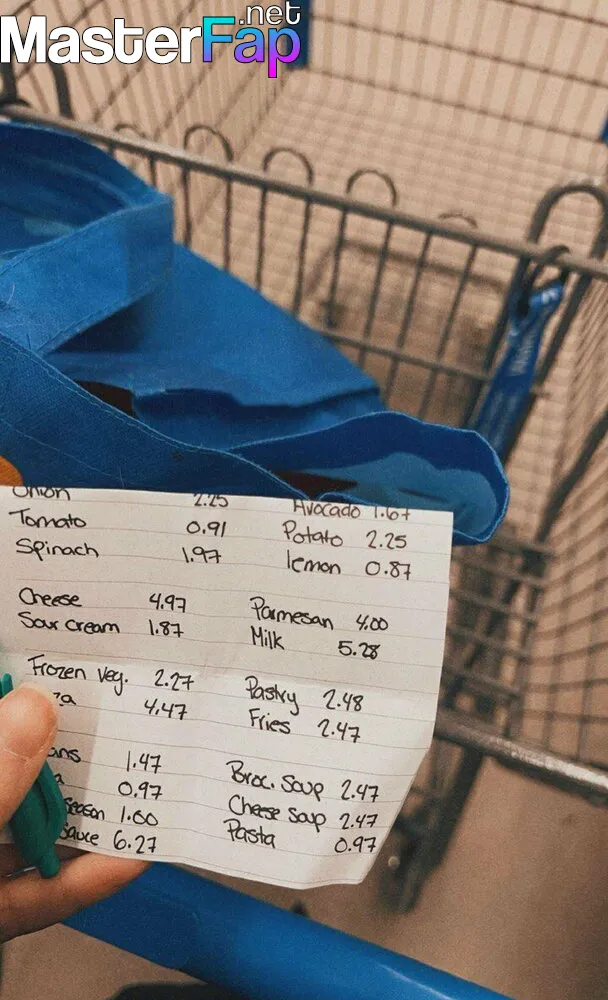 .net
MasterFap
Onion 2.25 Avocado 1.67
Tomato 0.91 Potato 2.25
Spinach 1.97 lemon 0.87
Cheese 4.97 Parmesan 4.00
Sour cream 1.87 Milk 5.28
Frozen Veg. 2.27 Pastry 2.48
za 4.47 Fries 2.47
ans 1.47 Broc. Soup 2.47
a 0.97 Cheese soup 2.47
Season 1.00 Pasta 0.97
Sauce 6.27